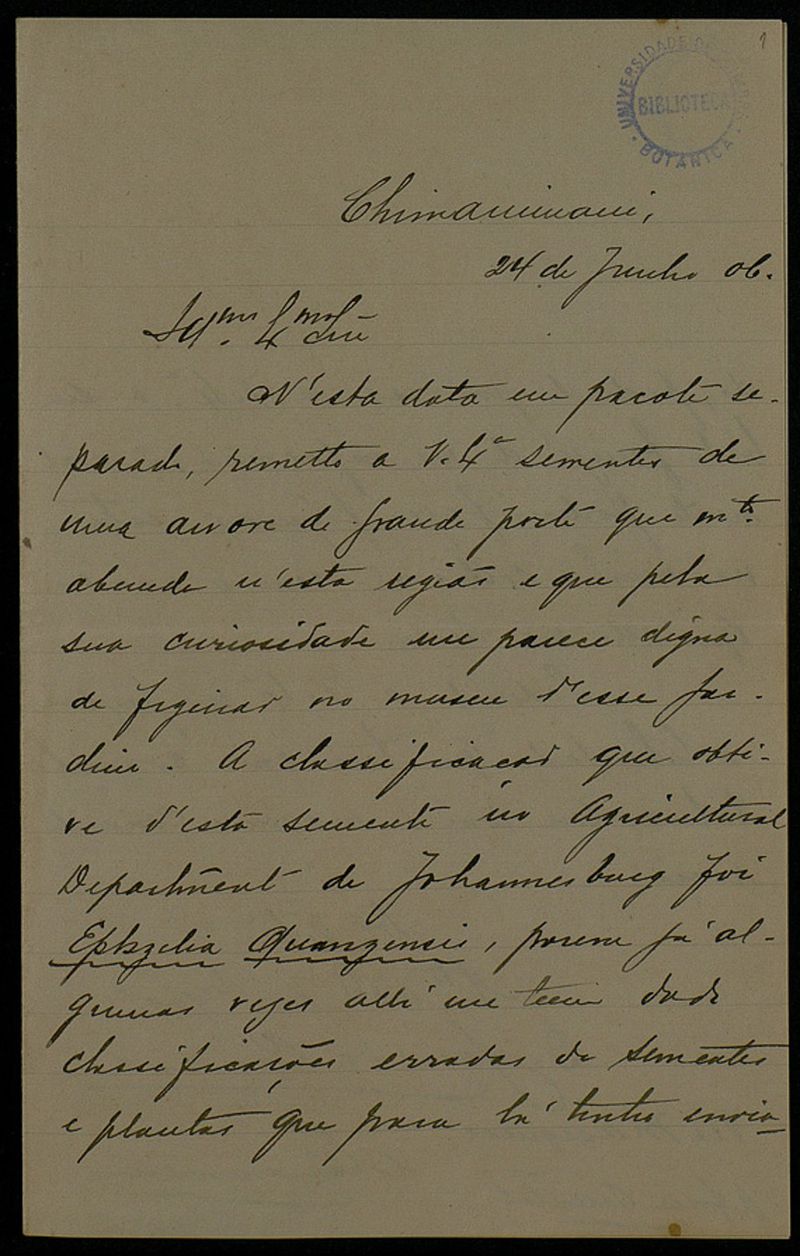 1
UNIVERSIDADE DE COIMBRA
BIBLIOTECA
BOTANICA
Chimanimani,
24 de Junho 06.
Illmo Exmo Snr
N'esta data em pacote se-
parado, remetto a V. Exa sementes de
uma arvore de grande porte que mto
abunda n'esta região e que pela
sua curiosidade me parece digna
de figurar no museu d'esse jar-
dim. A classificação que obti-
ve d'esta semente no Agricultural
Department de Johannesburg foi
Quanzensis, porem já al-
gumas vezes alli me teem dado
classificações erradas de sementes
e plantas que para lá tenho envia-